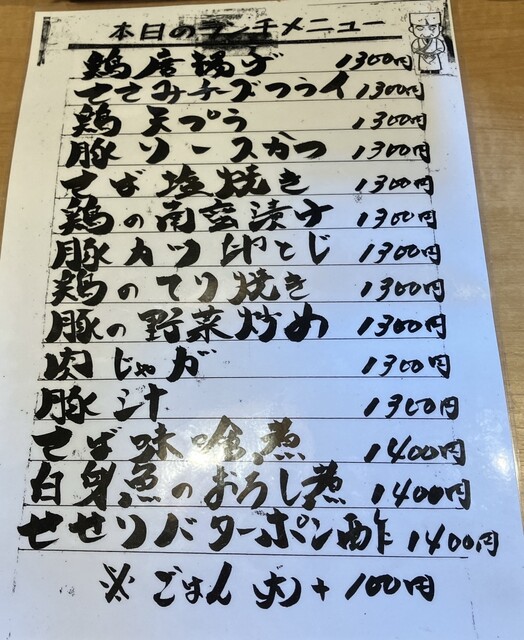 本日のランチメニュー
鶏唐揚げ 1300円
ささみチーズフライ 1300円
鶏天ぷら 1300円
豚ソースかつ 1300円
さば塩焼き 1300円
鶏の南蛮漬け 1300円
豚カツ卵とじ 1300円
鶏のてり焼き 1300円
豚の野菜炒め 1300円
肉じゃが 1300円
豚汁 1300円
さば味噌煮 1400円
白身魚のおろし煮 1400円
せせりバターポン酢 1400円
※ごはん 大 + 100円